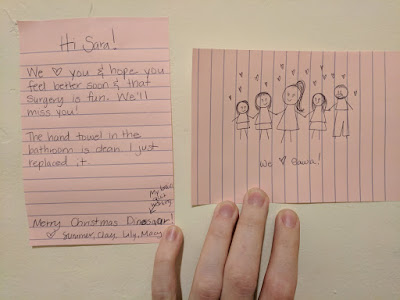 Hi Sara!
We ♡ you & hope you
feel better soon & that
surgery is fun. We'll
miss you!
The hand towel in the
bathroom is clean. I just
replaced it.
Merry Christmas Dinosaur!
♡ Summer, Clay, Lily, Mary
We ♡ Sawa!